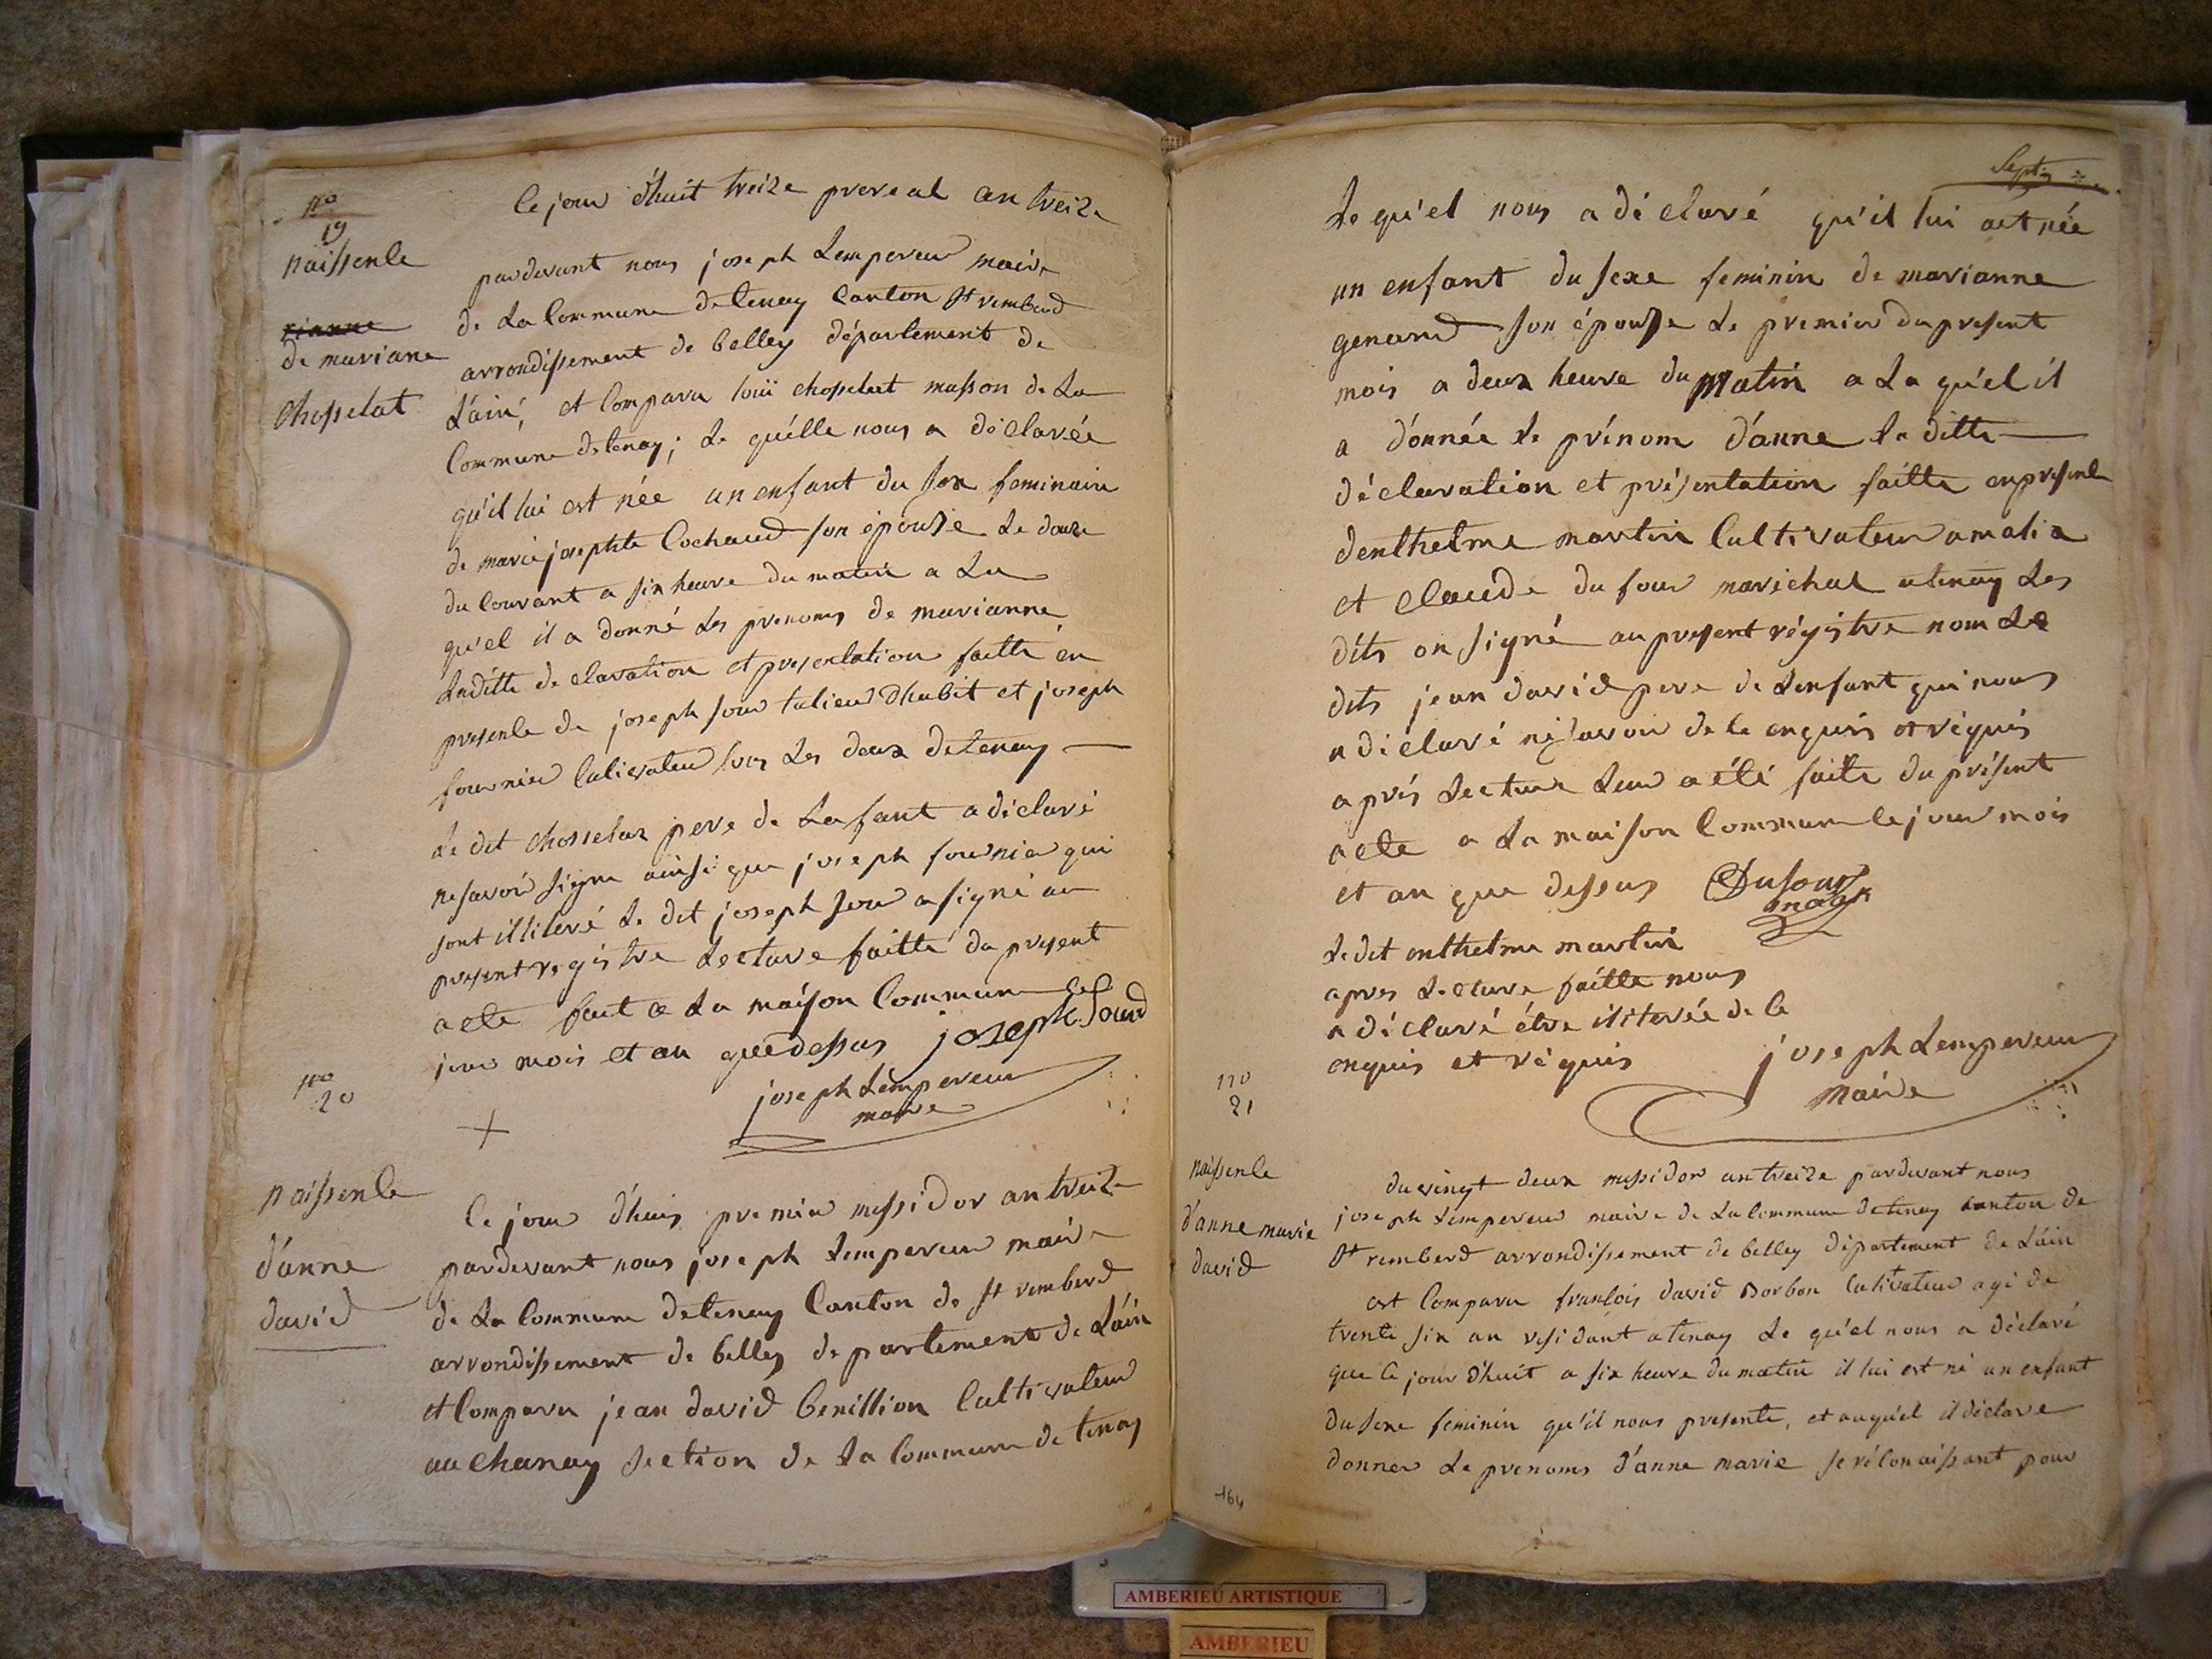 no
19
naissence
rianne
de mariane
chosselat
Ce jour d'huit treize prereal an treize
pardevant nous joseph Lempereur maire
de La Commune de tenay Canton St remberd
arrondissement de belley département de
L'ain, et Comparu louï chosselat masson de La
Commune de tenay; Le quélle nous a déclarée
qu'il lui est née un enfant du sex feminain
de marie josephte Cochaud son épouse Le douze
du Courant a six heure du matin a La
qu'el il a donné Les prenoms de marianne
Laditte declaration et presentation faitte en
presence de joseph Jour talieur d'habit et joseph
fournier Cultivateur tous Les deux de tenay
Le dit chosselas pere de Lafant a déclaré
ne savoir signe ainsi que joseph fournier qui
sont illiteré Le dit joseph Jour a signé au
present registre Lecture faitte du present
acte fait a La maison Commune le
jour mois et an que dessus joseph Jourd
joseph Lempereur
maire
no
20
naissence
d'anne
david
Ce jour d'huis premier messidor an treize
pardevant nous joseph Lempereur maire
de La Commune de tenay Canton de St remberd
arrondissement de belley departement de L'áin
et Comparu jean david benillion Cultivateur
au chanay section de La Commune de tenay
Sept
Le qu'el nous a déclaré qu'il lui aet née
un enfant du sexe feminin de marianne
genard son épouse Le premier du present
mois a deux heure du matin a La qu'el il
a d'onnée le prénom d'anne la ditte
déclaration et présentation faitte en presence
denthelme martin Cultivateur a malix
et Claude du four marichal a tenay Les
díts on signé au present régistre nom Le
dits jean david pere de Lenfant qui nous
a déclaré ne savoir de le enquis et réquis
aprés Lecture Leur a été faite du présent
acte a La maison Commune le jour mois
et an que dessus Dufour
Le dit enthelme martin
apres Lecture faitte nous
a déclaré étre iliterée de le
enquis et réquis
joseph Lempereur
maire
no
21
naissence
d'anne marie
david
du vingt deux messidor an treize pardevant nous
joseph Lempereur maire de La Commune de tenay canton de
St remberd arrondissement de belley département de L'áin
est Comparu francois david Borbon Cultivateur agé de
trente six an residant a tenay Le qu'el nous a déclaré
que le jour d'huit a six heure du matin il lui est né un enfant
du sexe feminin qu'il nous presente, et auqu'el il déclare
donner Le prenoms d'anne marie se réconaissant pour
164
AMBERIEU ARTISTIQUE
AMBERIEU